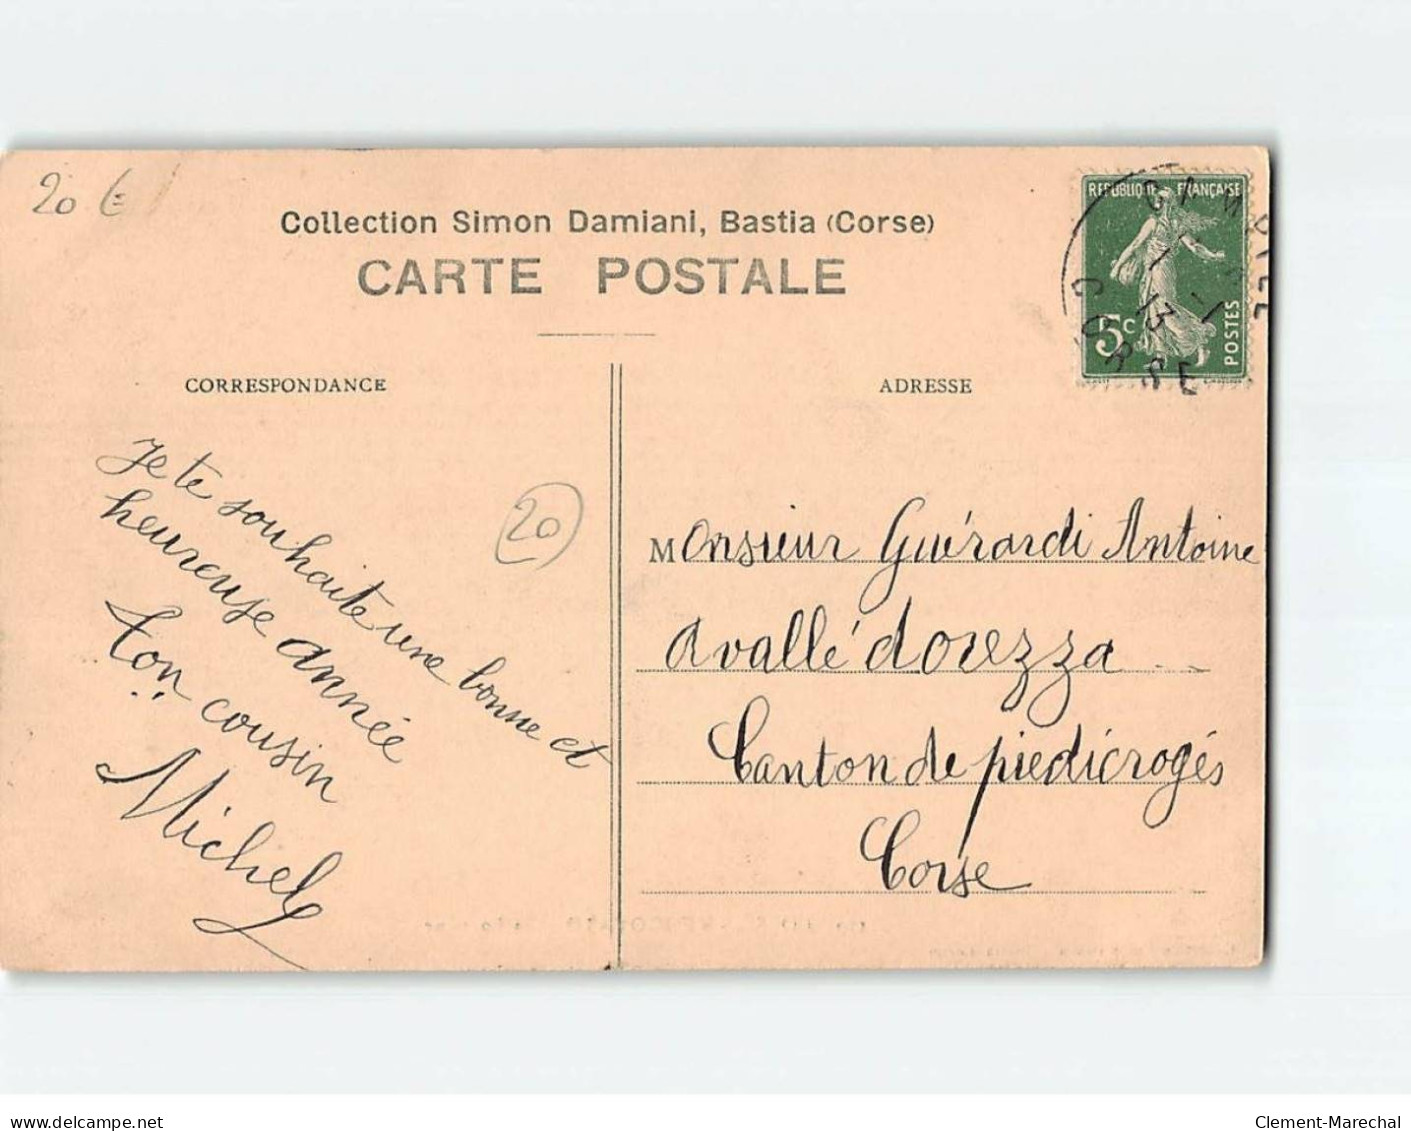 20 €
Collection Simon Damiani, Bastia (Corse)
CARTE POSTALE
REPUBLIQUE FRANÇAISE
5c
POSTES
CORSE
13
CORRESPONDANCE
ADRESSE
Je te souhaite une bonne et
heureuse année
ton cousin
Michel
20
Monsieur Guérardi Antoine
avallé dorezza
Canton de piedicrogés
Corse
delcampe.net
Clement-Marechal